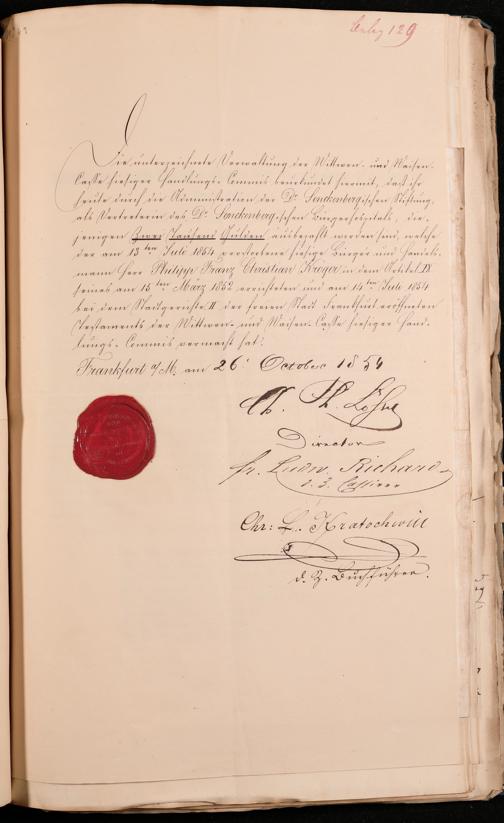 129
Die unterzeichnete Verwaltung der Wittwen- und Waisen-
Casse hiesiger Handlungs-Commis beurkundet hiermit, daß ihr
heute durch die Administration der Dr. Senckenberg.ischen Stiftung,
als Vertreterin des Dr. Senckenberg.ischen Bürgerhospitals, die-
jenigen Zwei Tausend Gulden ausbezahlt worden sind, welche
der am 13ten Juli 1854 verstorbene hiesige Bürger und Handels-
mann Herr Philipp Franz Christian Kröger in dem Artikel IX
seines am 15ten März 1852 errichteten und am 14ten Juli 1854
bei dem Stadtgerichte II der freien Stadt Frankfurt eröffneten
Testaments der Wittwen- und Waisen-Casse hiesiger Hand-
lungs-Commis vermacht hat.
Frankfurt a/M. am 26. October 1854
Director
Fr. Ludw. Richard
d. Z. Cassirer
Chr: L. Kratochwill
d. Z. Buchführer.